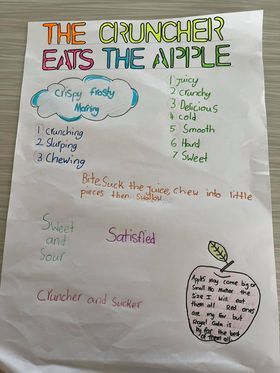 THE CRUNCHER
EATS THE APPLE
Crispy frosty
Morning
1 Crunching
2 Slurping
3 Chewing
1 Juicy
2 Crunchy
3 Delicious
4 cold
5 Smooth
6 Hard
7 Sweet
Bite Suck the Juice, chew into little
pieces then Swallow
Sweet
and
Sour
Satisfied
Cruncher and Sucker
Apples may come big or
Small No Matter the
Size I will eat
them all Red ones
are my fav but
Royal Gala is
by far the best
of them all